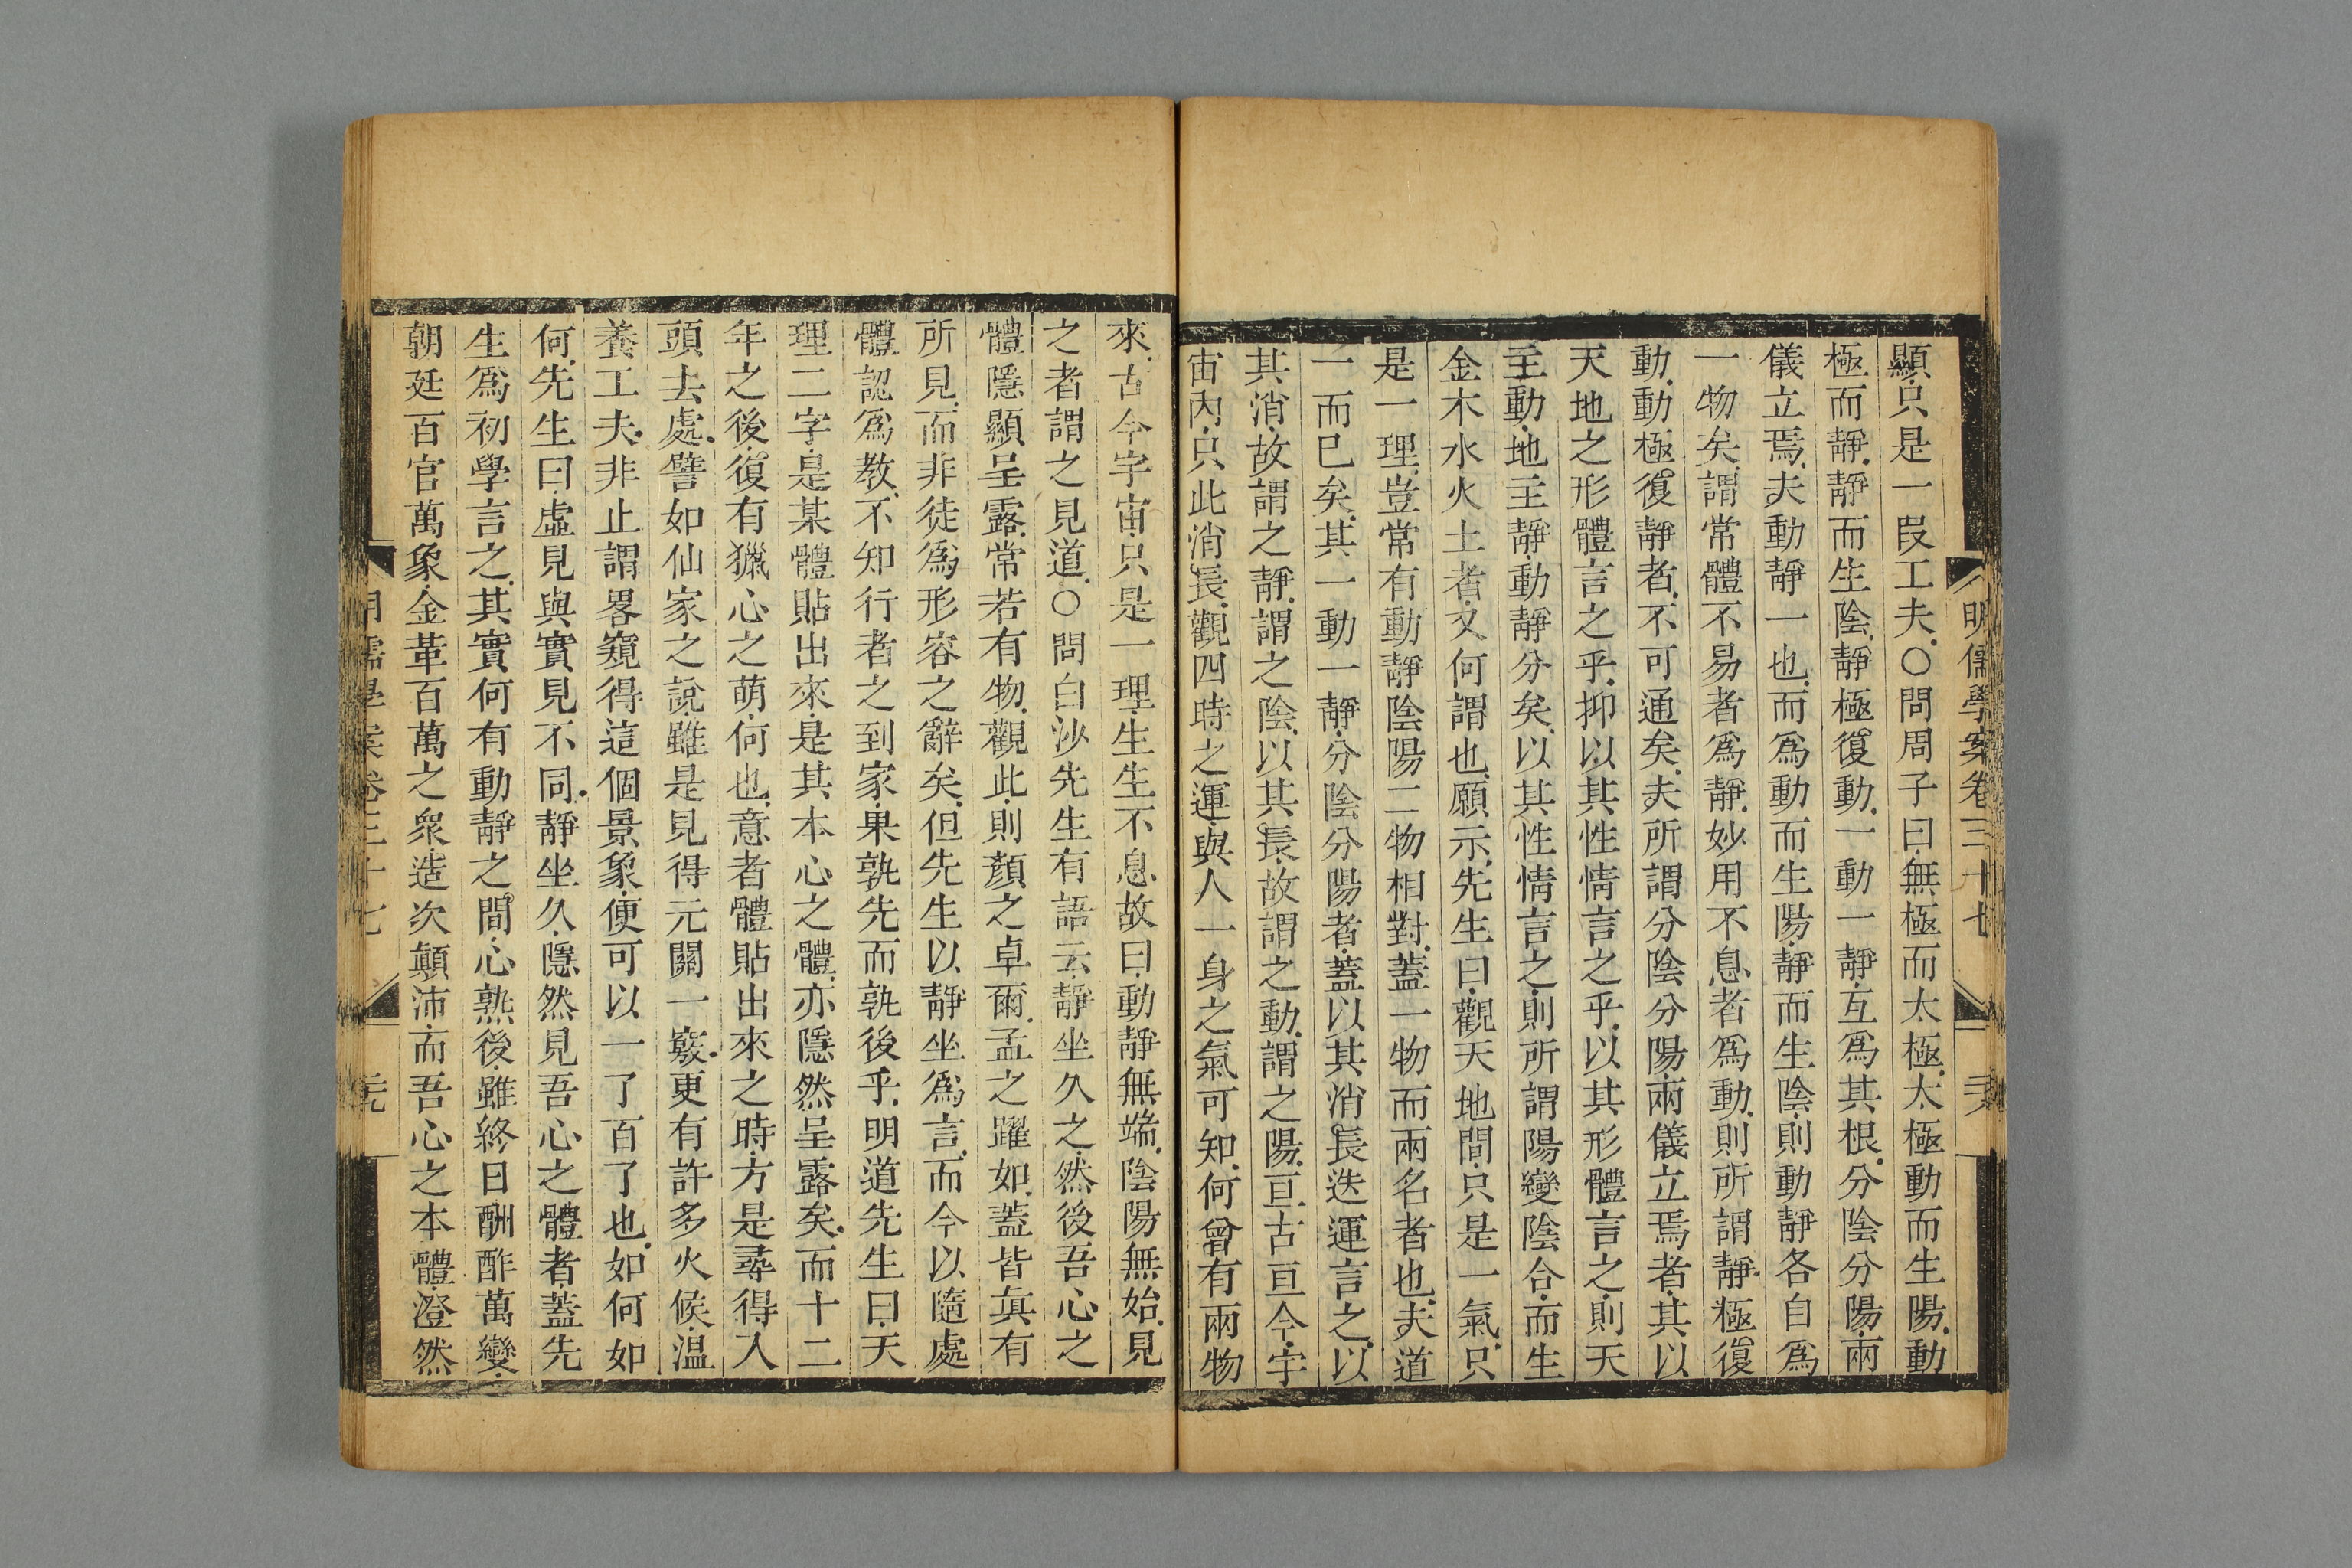 明儒學案卷三十七
顯、只是一段工夫、○問周子曰、無極而太極、太極動而生陽、動
極而靜、靜而生陰、靜極復動、一動一靜、互爲其根、分陰分陽、兩
儀立焉、夫動靜一也、而爲動而生陽、靜而生陰、則動靜各自爲
一物矣、謂常體不易者爲靜、妙用不息者爲動、則所謂靜極復
動、動極復靜者、不可通矣、夫所謂分陰分陽、兩儀立焉者、其以
天地之形體言之乎、抑以其性情言之乎、以其形體言之、則天
主動、地主靜、動靜分矣、以其性情言之、則所謂陽變陰合、而生
金木水火土者、又何謂也、願示、先生曰、觀天地間、只是一氣、只
是一理、豈常有動靜陰陽二物相對、蓋一物而兩名者也、夫道
一而已矣、其一動一靜、分陰分陽者、蓋以其消長迭運言之、以
其消、故謂之靜、謂之陰、以其長、故謂之動、謂之陽、亘古亘今、宇
宙內、只此消長、觀四時之運、與人一身之氣可知、何曾有兩物
來、古今宇宙、只是一理、生生不息、故曰、動靜無端、陰陽無始、見
之者謂之見道、○問白沙先生有語云、靜坐久之、然後吾心之
體隱顯呈露、常若有物、觀此、則顏之卓爾、孟之躍如、蓋皆眞有
所見、而非徒爲形容之辭矣、但先生以靜坐爲言、而今以隨處
體認爲教、不知行者之到家、果孰先而孰後乎、明道先生曰、天
理二字、是某體貼出來、是其本心之體、亦隱然呈露矣、而十二
年之後、復有獵心之萌、何也、意者體貼出來之時、方是尋得入
頭去處、譬如仙家之說、雖是見得元關一竅、更有許多火候、温
養工夫、非止謂畧窺得這個景象、便可以一了百了也、如何如
何、先生曰、虛見與實見不同、靜坐久、隱然見吾心之體者、蓋先
生爲初學言之、其實何有動靜之間、心熟後、雖終日酬酢萬變、
朝廷百官萬象、金革百萬之衆、造次顛沛、而吾心之本體、澄然
明儒學案卷三十七